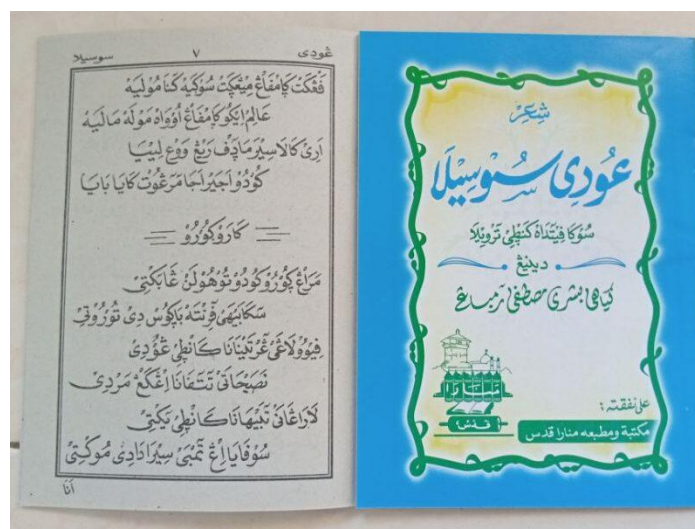 ڠودى ٧ سوسيلا
فَڠْكَتْ كَامْفَاڠْ مِيڠْكَتْ سُوكِيْه كَنَا مُولِيَهْ
عَالِمْ اِيْكُو كَامْفَاڠْ اَوْوَاهْ مَوْلَهْ مَالِيَهْ
اَرِيْ كَالَا سِيْرَ مَادَڤْ رِيڠْ وَوڠْ لِيْيَا
كُوْدُوْ اَجَيْر اَجَا مْرَڠُوْت كَايَا بَايَا
كَارَوْ كُوْرُوْ
مَرَاڠْ كُوْرُوْ كُوْدُوْ تُوْهُوْ لَنْ ڠَابَكْتِيْ
سَكَابَيْهَيْ فَرِنْتَهْ بَاكُوْس دِيْ تُوْرُوْتِيْ
فِيْوُوْلَاڠَيْ ڠَرْتَيْنَانَا كَانْطِيْ ڠُوْدِيْ
نَصِيْحَاتَيْ تَتَفَانَا اِڠْكَڠْ مَرْدِيْ
لَارَاڠَانَيْ تَبَيْهَانَا كَانْطِيْ يَكْتِيْ
سُوْفَايَا اِڠْ تَمْبَيْ سِيْرَا دَادِيْ مُوْكْتِيْ
اَنَا
شِعِرْ
ڠُوْدِيْ سُوْسِيْلَا
سُوْكَا فِيْتَدَاهْ كَنْطِيْ تَرْوِيْلَا
دينيڠ
كياهى بشرى مصطفى رمباڠ
منارا
قدس
على نفقته :
مكتبة ومطبعه منارا قدس